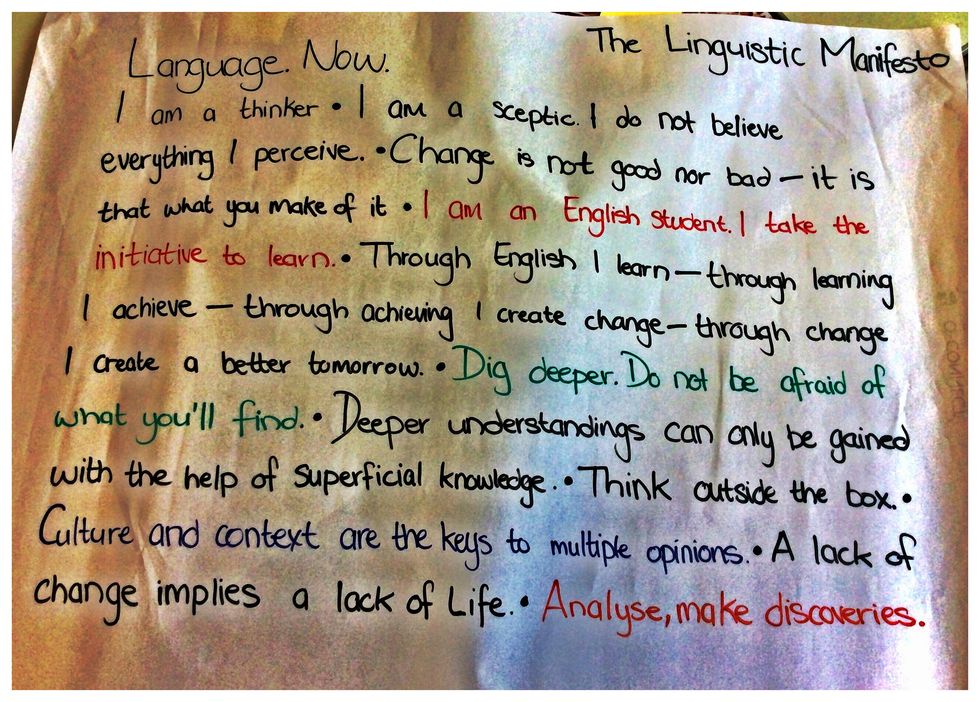 Language. Now. The Linguistic Manifesto
I am a thinker • I am a sceptic. I do not believe
everything I perceive. • Change is not good nor bad — it is
that what you make of it • I am an English student. I take the
initiative to learn. • Through English I learn — through learning
I achieve — through achieving I create change — through change
I create a better tomorrow. • Dig deeper. Do not be afraid of
what you'll find. • Deeper understandings can only be gained
with the help of superficial knowledge. • Think outside the box. •
Culture and context are the keys to multiple opinions. • A lack of
change implies a lack of Life. • Analyse, make discoveries.